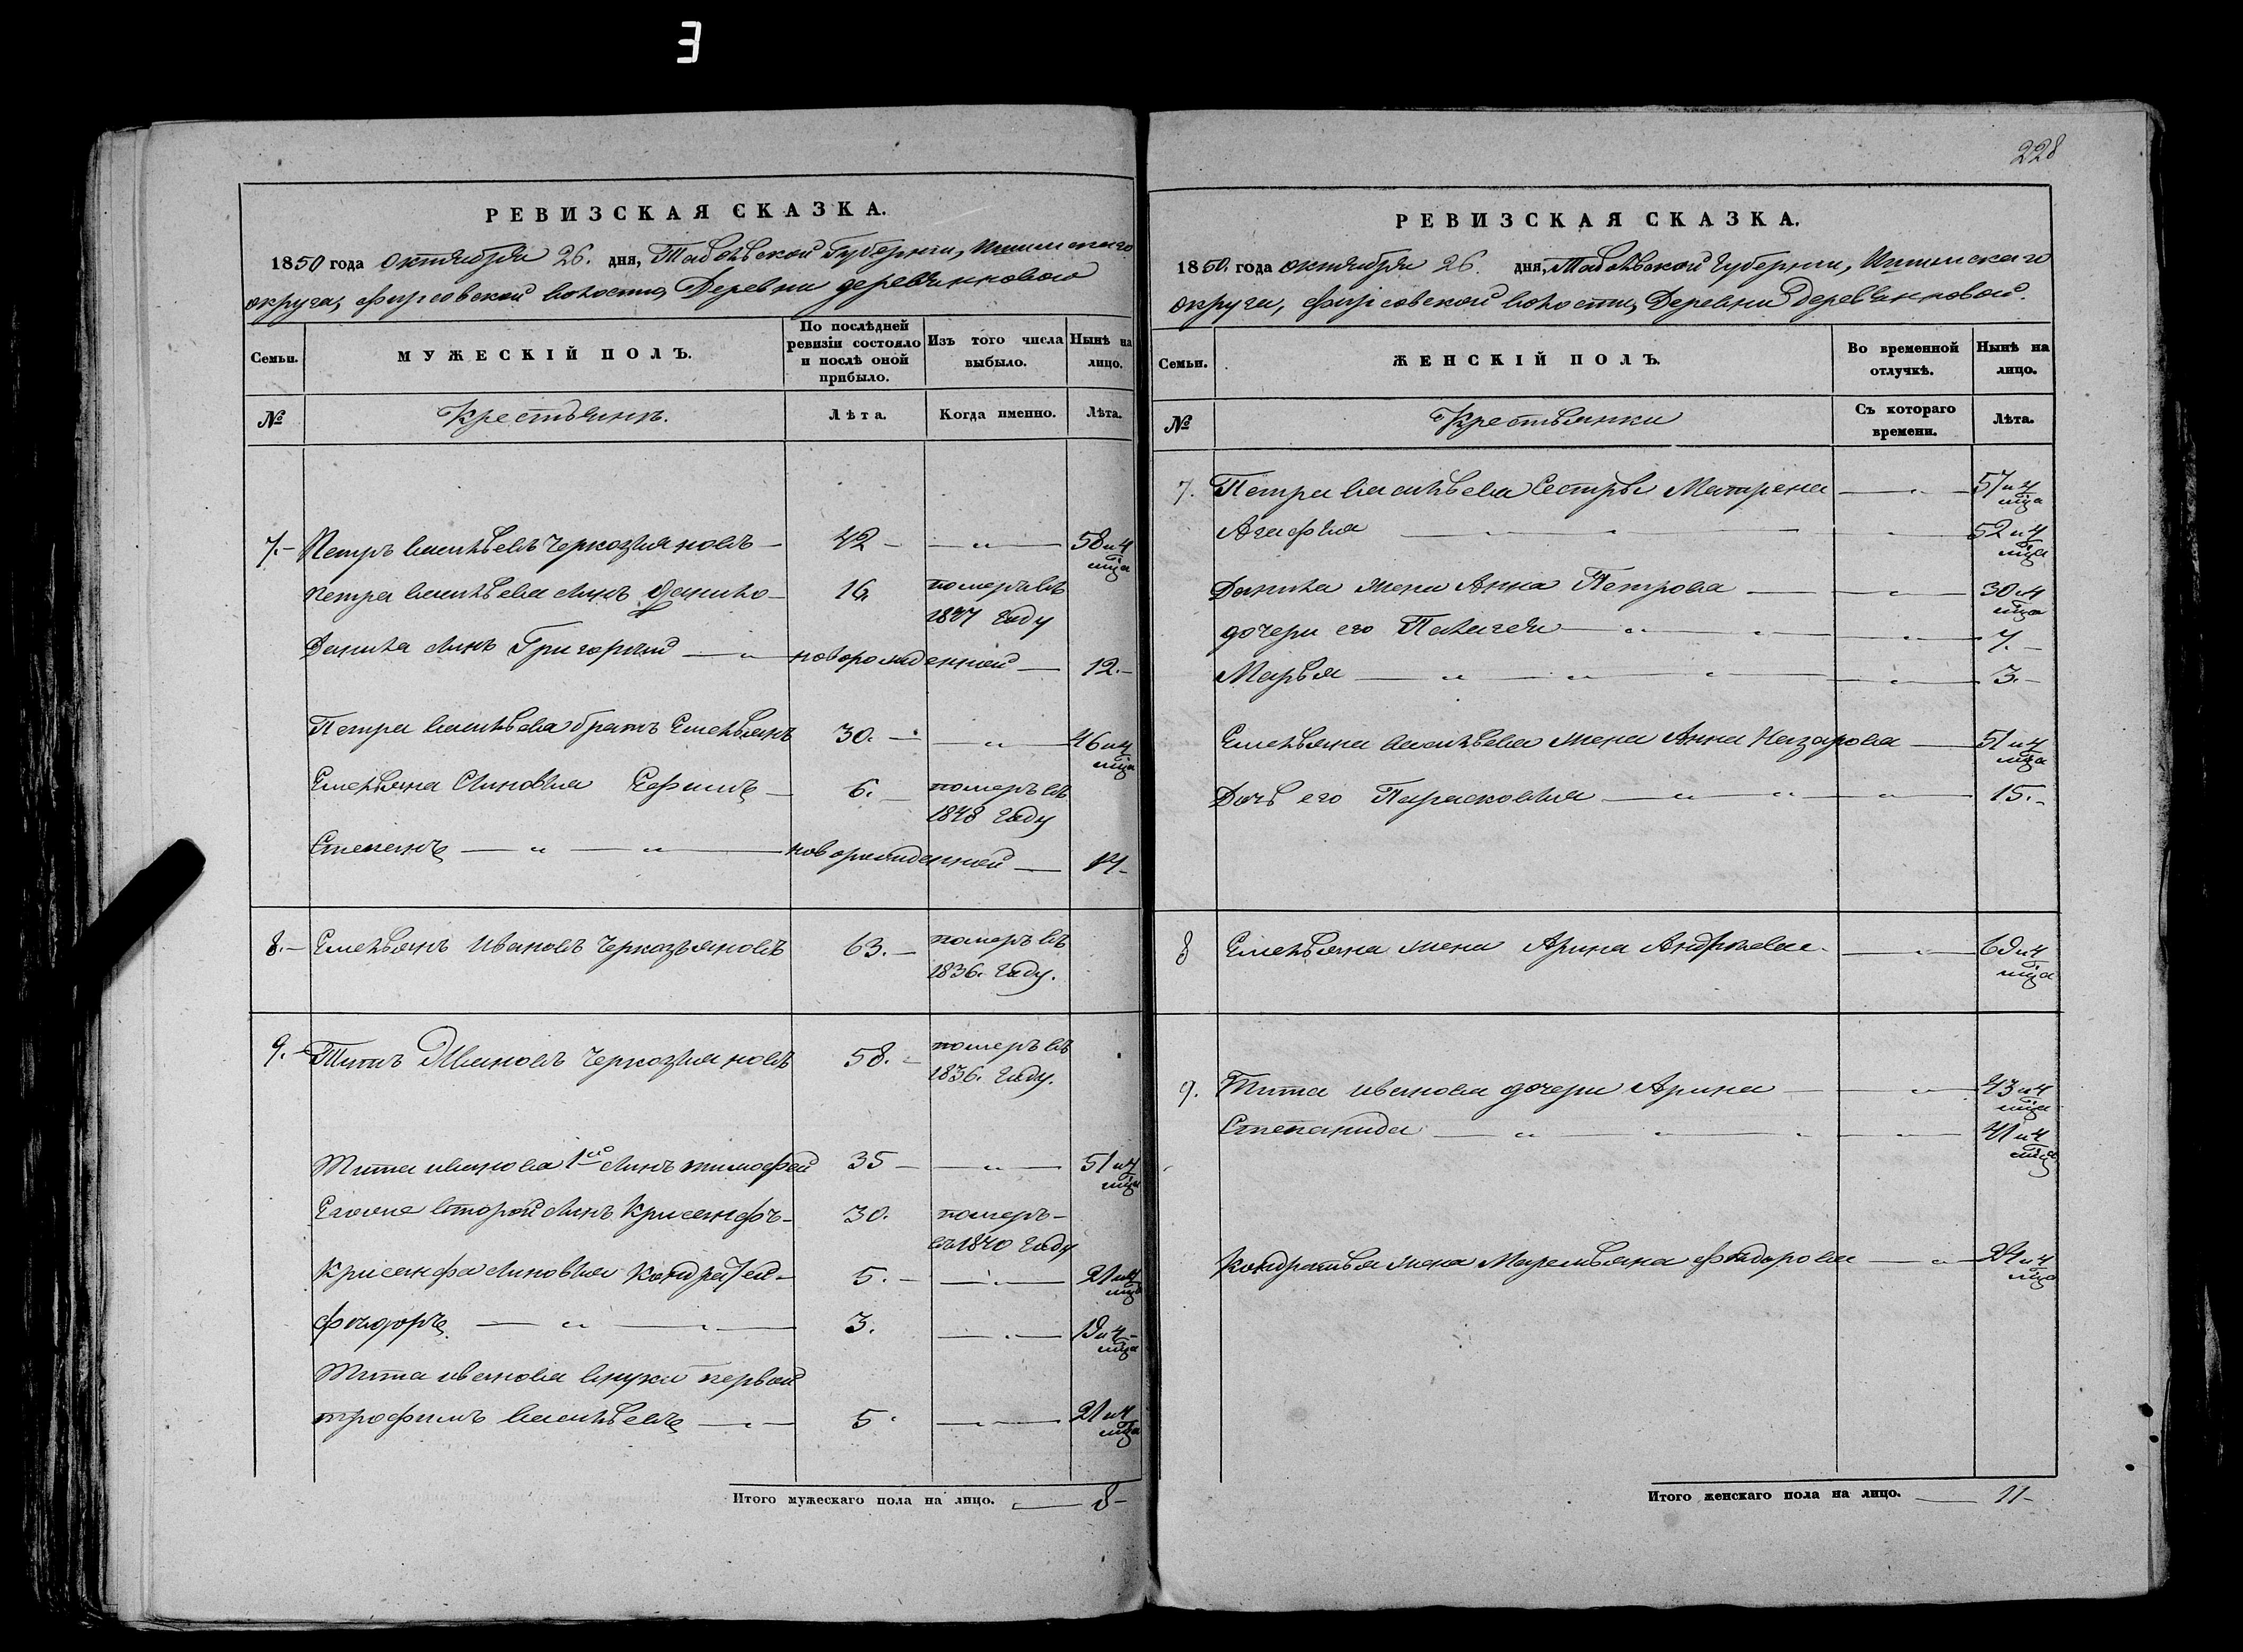 Е
РЕВИЗСКАЯ СКАЗКА.
1850 года Октября 26. дня, Тобольской Губернии, Ишимскаго
округа, Фирсовской волости, Деревни деревянновой
Семьи.
МУЖЕСКІЙ ПОЛЪ.
По послѣдней ревизіи состояло и послѣ оной прибыло.
Изъ того числа выбыло.
Нынѣ на лицо.
№
Крестьянъ.
Лѣта.
Когда именно.
Лѣта.
7.- Петръ Васильевъ Черкозьяновъ - 42 - — „ — 58 и 4 мца
Петра Васильева сынъ Данило - 16 померъ въ
1847 Году
Данила сынъ Григорий — „ — новорожденной — 12.-
Петра Васильева братъ Емельянъ 30. - — „ — 46 и 4 мца
Емельяна Сыновья Ефимъ - 6. - померъ въ
1848 Году
Степанъ — „ — „ — новорожденной — 14-
8.- Емельянъ Ивановъ Черкозьяновъ 63. - померъ въ
1836. Году.
9.- Титъ Ивановъ Черкозьяновъ 58. - померъ въ
1836. Году.
Тита иванова 1ый сынъ тимофей 35 - — „ — 51 и 4 мца
Второй сынъ Крисанфъ - 30. померъ -
въ 1840 Году
Крисанфа сыновья Кондратей - 5. - — „ — 21 и 4 мца
Фёдоръ — „ — „ — 3. — „ — 19 и 4 - мца
Тита иванова внуки первой
трофимъ Васильевъ — „ — 5. — „ — 21 и 4 мца
Итого мужескаго пола на лицо. — 8-
228
РЕВИЗСКАЯ СКАЗКА.
1850. года октября 26. дня, Тобольской Губернии, Ишимскаго
округа, Фирсовской волости, Деревни Деревянновой.
Семьи.
ЖЕНСКІЙ ПОЛЪ.
Во временной отлучкѣ.
Нынѣ на лицо.
№
Крестьянки
Съ котораго времени.
Лѣта.
7. Петра Васильева Сестры Матрена — „ — 57 и 4 мца
Агафия — „ — „ — „ — 52 и 4 мца
Данила жена Анна Петрова — „ — 30 и 4 мца
дочери его Палагея — „ — „ — „ — 7. -
Марья — „ — „ — „ — „ — 3. -
Емельяна Васильева жена Анна Назарова — 51 и 4 мца
Дочь его Парасковья — „ — „ — „ — 15. -
8 Емельяна жена Арина Андреева. — „ — 69 и 4 мца
9. Тита иванова дочери Арина — „ — 43 и 4 мца
Степанида — „ — „ — „ — „ — 41 и 4 мца
Кондратья жена Маремьяна Фёдорова — „ — 24 и 4 мца
Итого женскаго пола на лицо. — 11-